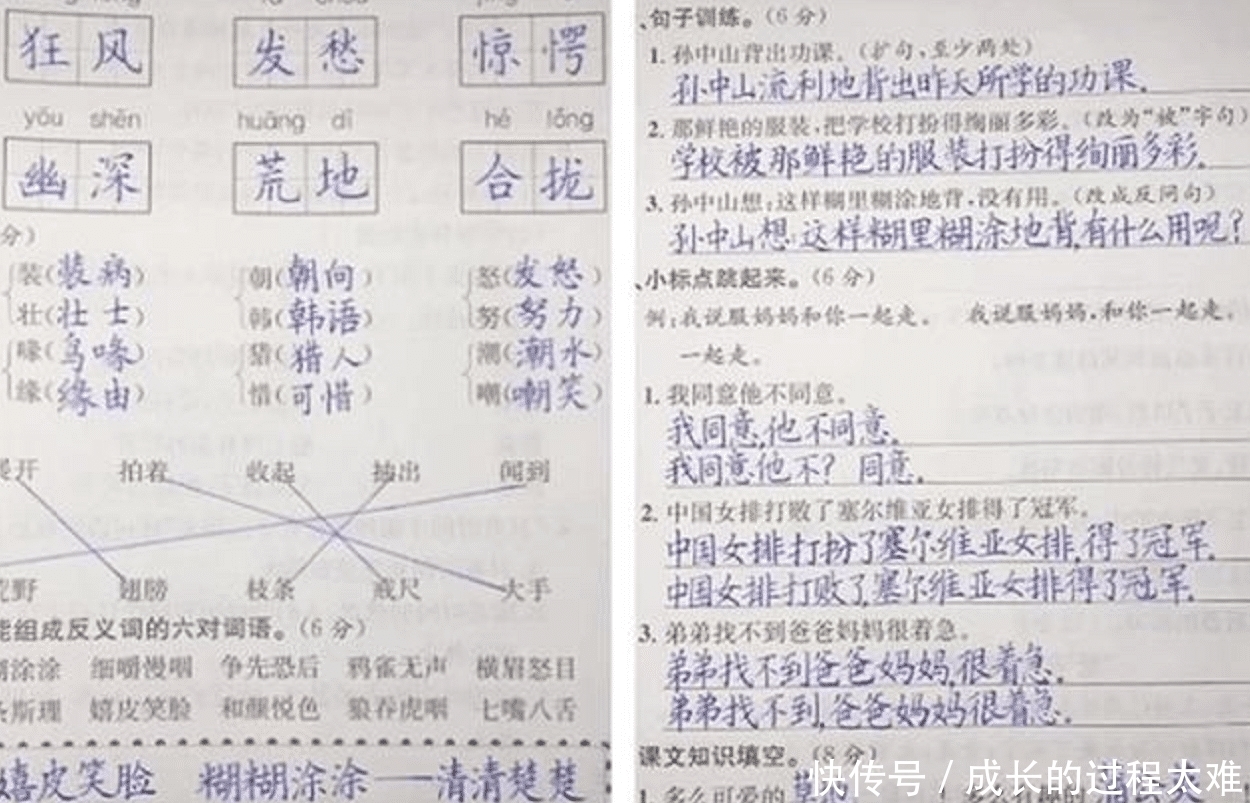 狂风 发愁 惊愕
yōu shēn huāng dì hé lǒng
幽深 荒地 合拢
分）
装(装病) 朝(朝向) 怒(发怒)
壮(壮士) 韩(韩语) 努(努力)
喙(鸟喙) 猎(猎人) 潮(潮水)
缘(缘由) 惜(可惜) 嘲(嘲笑)
展开 拍着 收起 抽出 闻到
荒野 翅膀 枝条 戒尺 大手
能组成反义词的六对词语。（6分）
糊涂涂 细嚼慢咽 争先恐后 鸦雀无声 横眉怒目
条斯理 嬉皮笑脸 和颜悦色 狼吞虎咽 七嘴八舌
嬉皮笑脸 糊糊涂涂——清清楚楚
、句子训练。（6分）
1. 孙中山背出功课。（扩句，至少两处）
孙中山流利地背出昨天所学的功课.
2. 那鲜艳的服装，把学校打扮得绚丽多彩。（改为“被”字句）
学校被那鲜艳的服装打扮得绚丽多彩.
3. 孙中山想：这样糊里糊涂地背，没有用。（改成反问句）
孙中山想:这样糊里糊涂地背,有什么用呢？
、小标点跳起来。（6分）
例：我说服妈妈和你一起走。 我说服妈妈，和你一起走。
一起走。
1. 我同意他不同意。
我同意,他不同意.
我同意他不？同意.
2. 中国女排打败了塞尔维亚女排得了冠军。
中国女排打扮了塞尔维亚女排,得了冠军.
中国女排打败了,塞尔维亚女排得了冠军.
3. 弟弟找不到爸爸妈妈很着急。
弟弟找不到爸爸妈妈,很着急.
弟弟找不到,爸爸妈妈很着急.
课文知识填空。（8分）
1. 多么可爱的
快传号 / 成长的过程太难